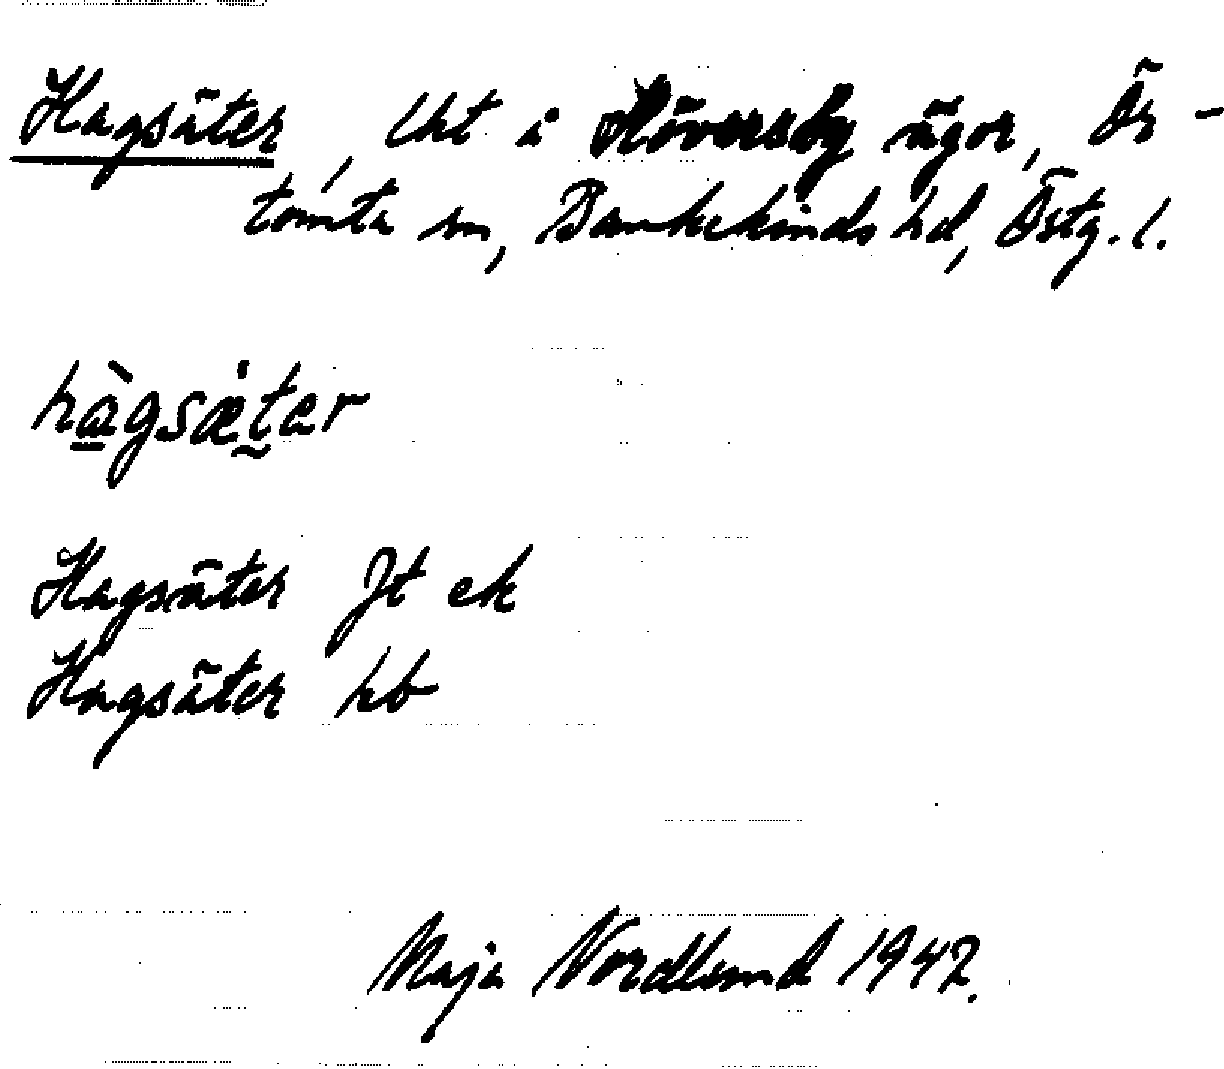 Hagsäter, lht i Röversby ägor, Ör-
tomta sn, Bankekinds hd, Östg. l.
hàgsæ̇tær
Hagsäter Jt ek
Hagsäter hb
Maja Nordlund 1942.